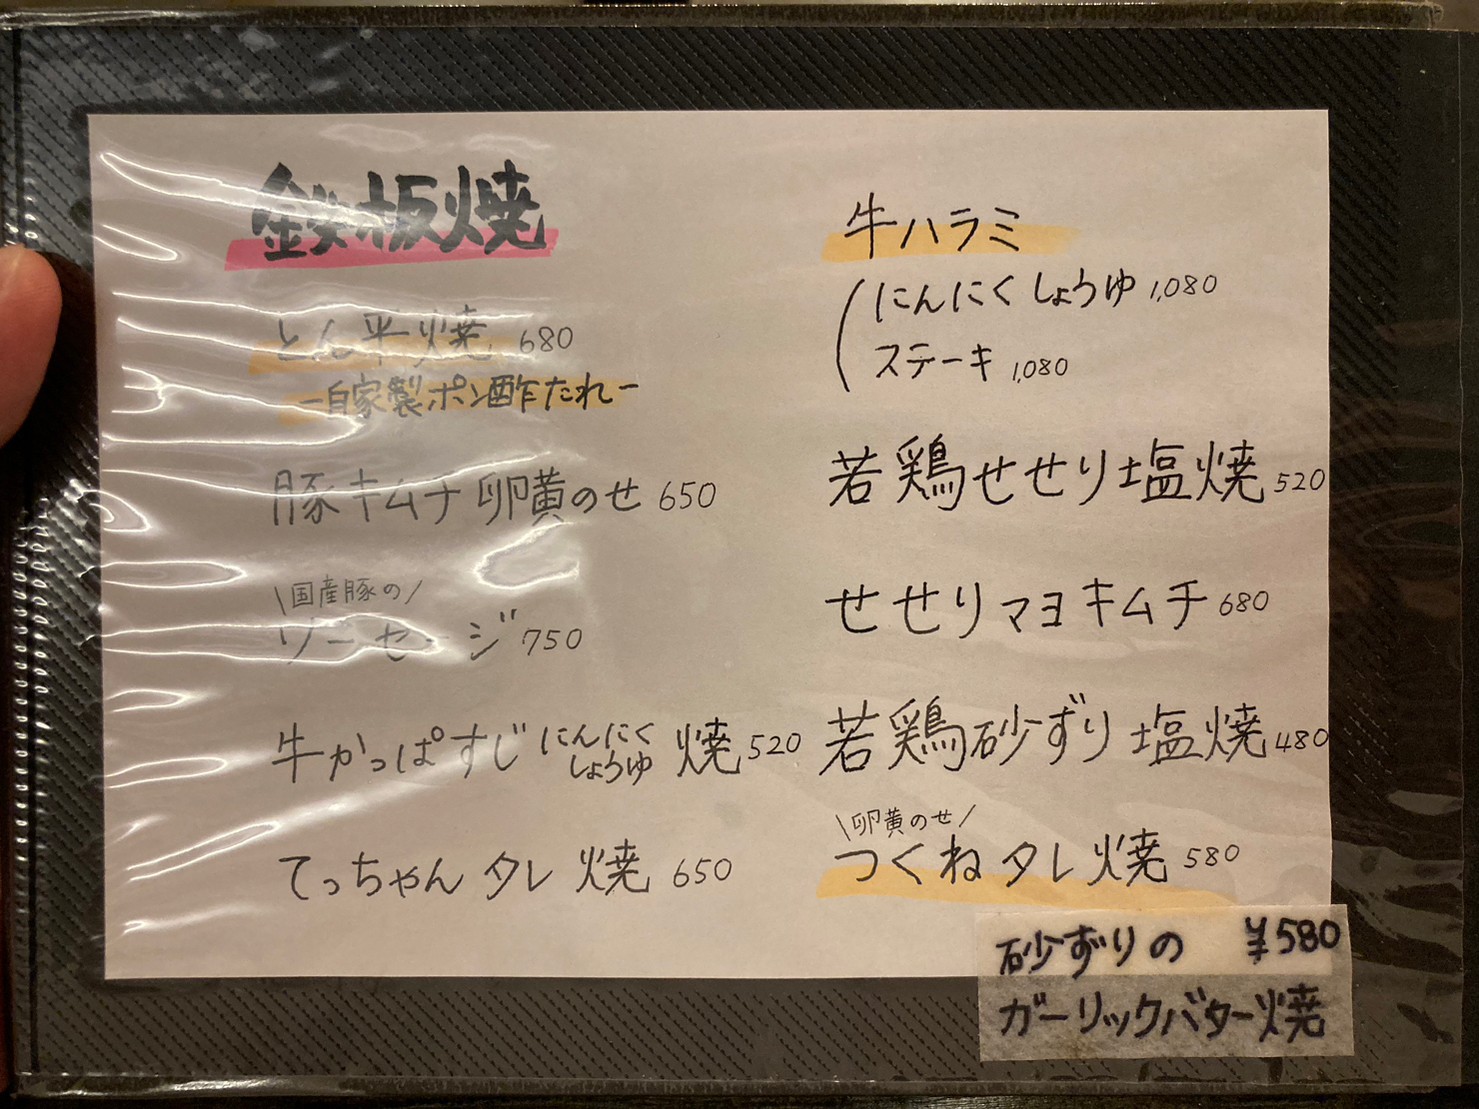 鉄板焼
とん平焼 680
ー自家製ポン酢たれー
豚キムチ 卵黄のせ 650
\国産豚の/
ソーセージ 750
牛かっぱすじ にんにくしょうゆ 焼 520
てっちゃん タレ 焼 650
牛ハラミ
にんにくしょうゆ 1,080
ステーキ 1,080
若鶏せせり塩焼 520
せせりマヨキムチ 680
若鶏砂ずり塩焼 480
\卵黄のせ/
つくねタレ焼 580
砂ずりの ¥580
ガーリックバター焼